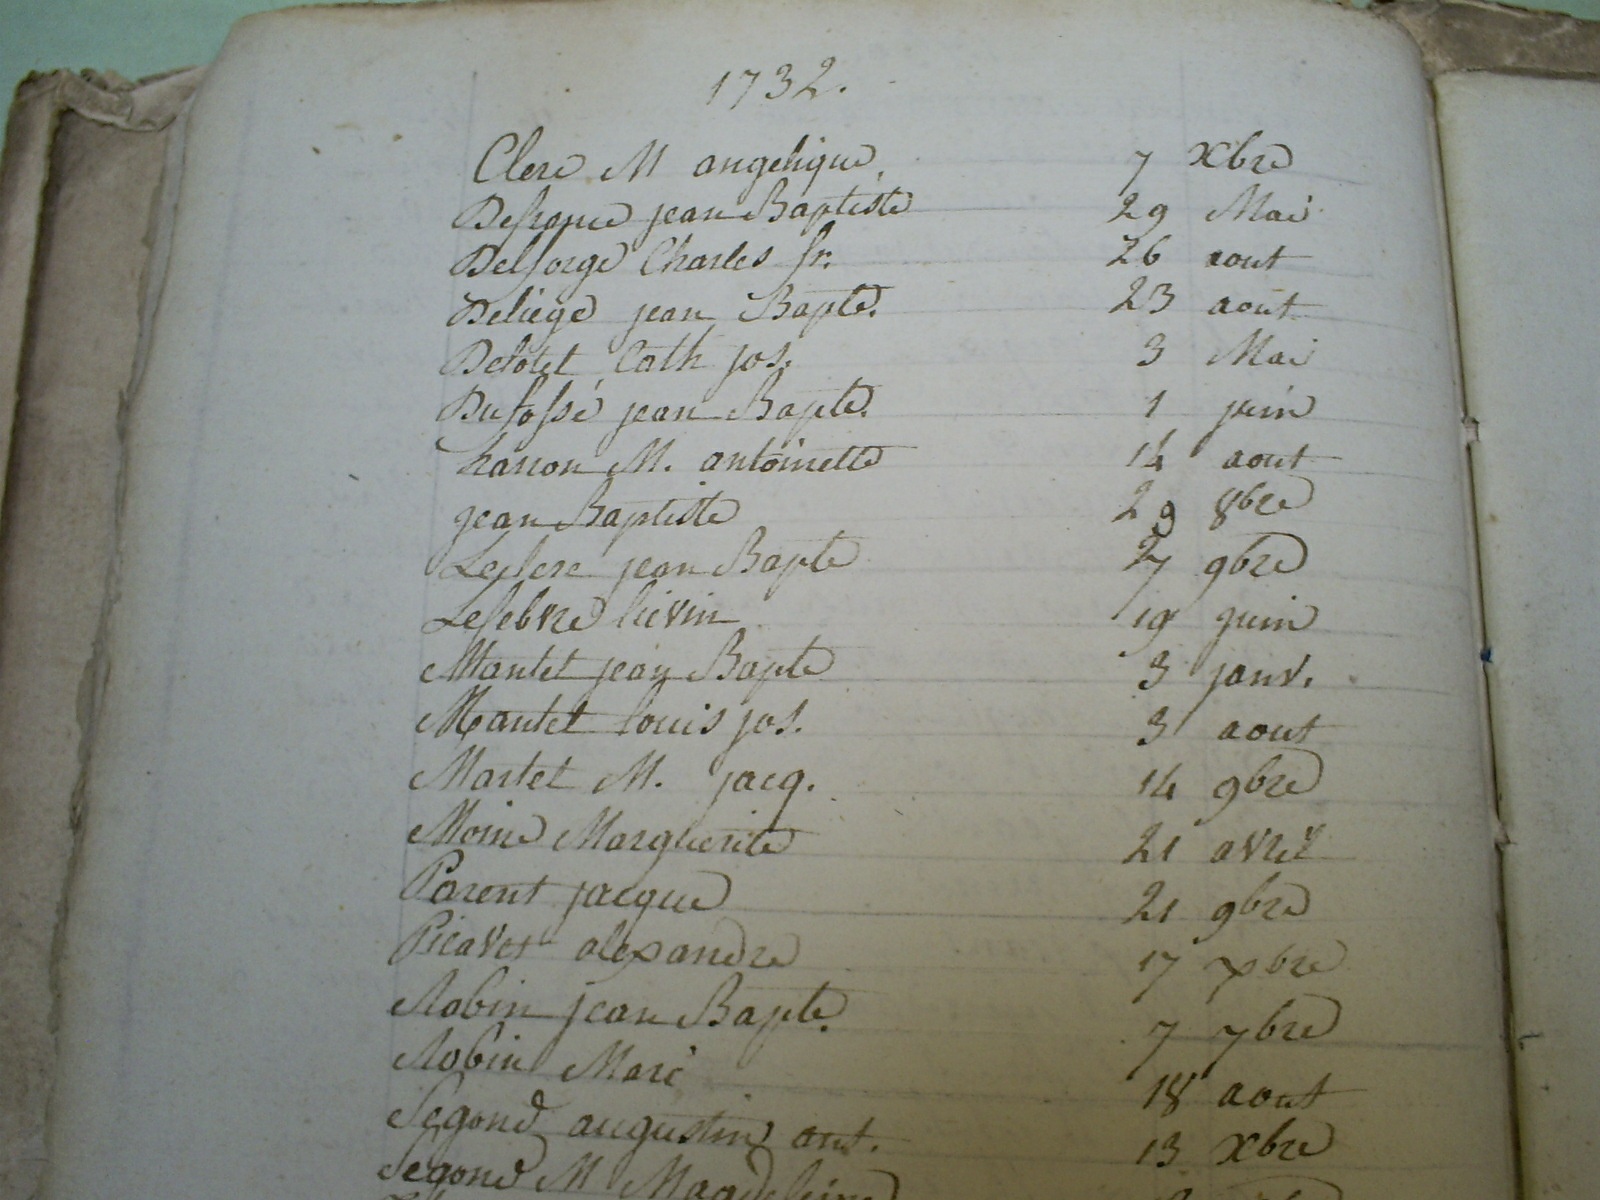 1732.
Clerc M angelique, 7 Xbre
Defrance jean Baptiste 29 Mai
Delforge Charles fr. 26 aout
Deliege jean Bapte. 23 aout
Delotel Cath jos. 3 Mai
Dufossé jean Bapte. 1 juin
hanon M. antoinette 14 aout
jean Baptiste 29 8bre
Leclerc jean Bapte 27 9bre
Lefebvre lievin 19 juin
Mantel jean Bapte 3 janv.
Mantel louis jos. 3 aout
Martel M. jacq. 14 9bre
Moine Marguerite 21 avril
Parent jacque 21 9bre
Picavet alexandre 17 xbre
Robin jean Bapte. 7 7bre
Robin Marc 18 aout
Segond augustin ant. 13 Xbre
Segond M Magdeleine